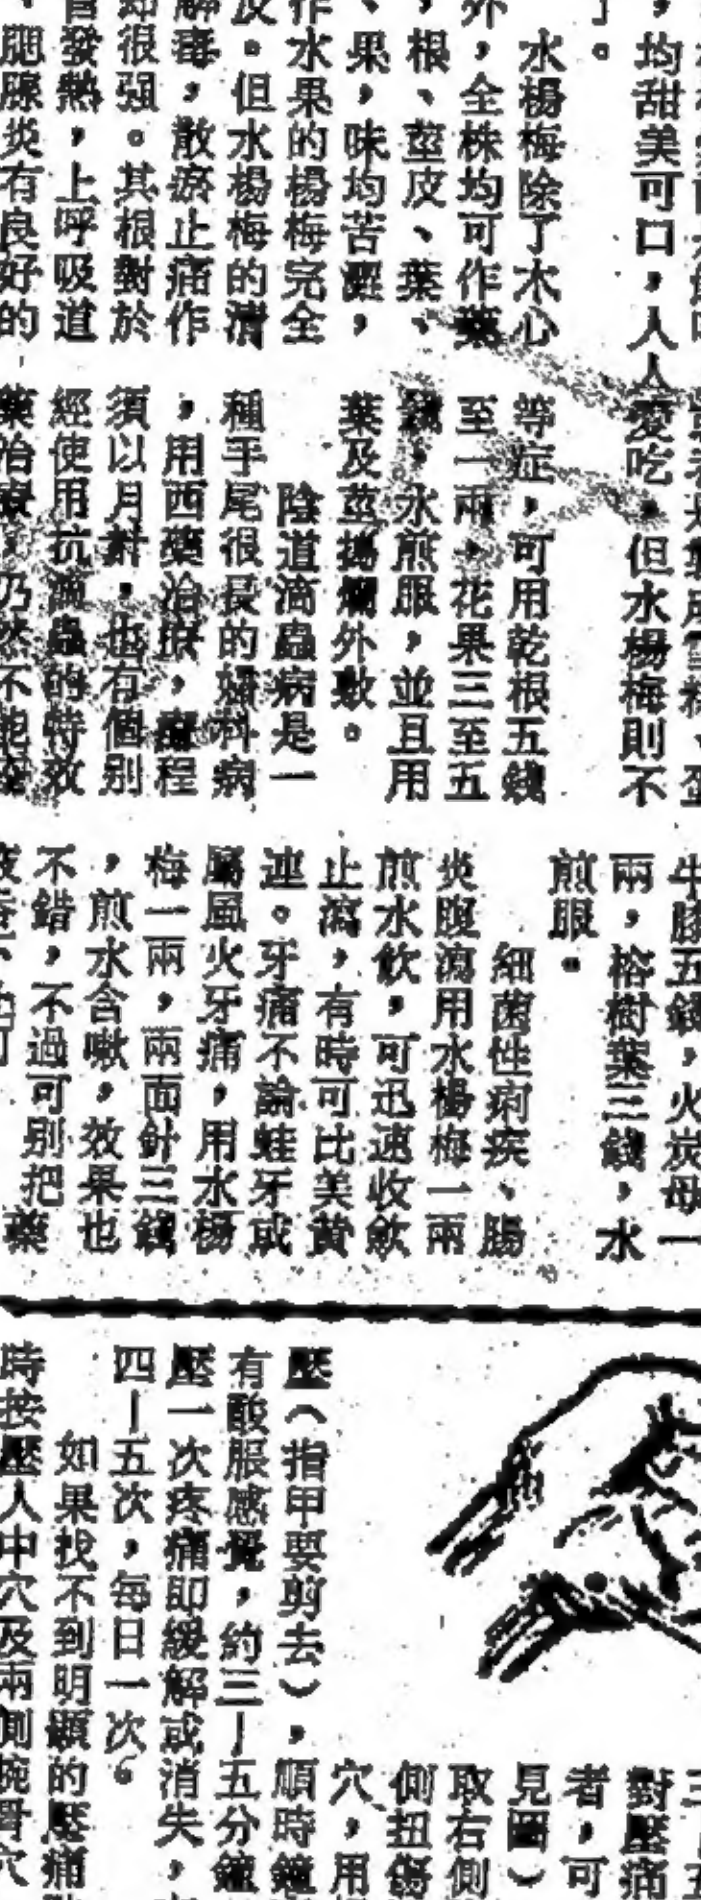 ，均甜美可口，人人愛吃，但水楊梅則不
」。
水楊梅除了木心
外，全株均可作藥
，根、莖皮、葉、
、果，味均苦澀，
作水果的楊梅完全
及。但水楊梅的清
解毒，散瘀止痛作
却很强。其根對於
發熱，上呼吸道
腮腺炎有良好的
等症，可用乾根五錢
至一兩，花果三至五
錢，水煎服，並且用
葉及莖搗爛外敷。
陰道滴蟲病是一
種手尾很長的婦科病
，用西藥治療，療程
須以月計，也有個別
經使用抗滴蟲的特效
藥治療，仍然不能
牛膝五錢，火炭母一
兩，榕樹葉三錢，水
煎服。
細菌性痢疾、腸
炎腹瀉用水楊梅一兩
煎水飲，可迅速收歛
止瀉，有時可比美黃
連。牙痛不論蛀牙或
屬風火牙痛，用水楊
梅一兩，兩面針三錢
，煎水含嗽，效果也
不錯，不過可別把
藥
對壓痛
者，可
見圖）
取右側
側扭傷
穴，用
壓（指甲要剪去），順時鐘
有酸脹感覺，約三—五分鐘
壓一次疼痛即緩解或消失，
四—五次，每日一次。
如果找不到明顯的壓痛
時按壓人中穴及兩側腕骨穴